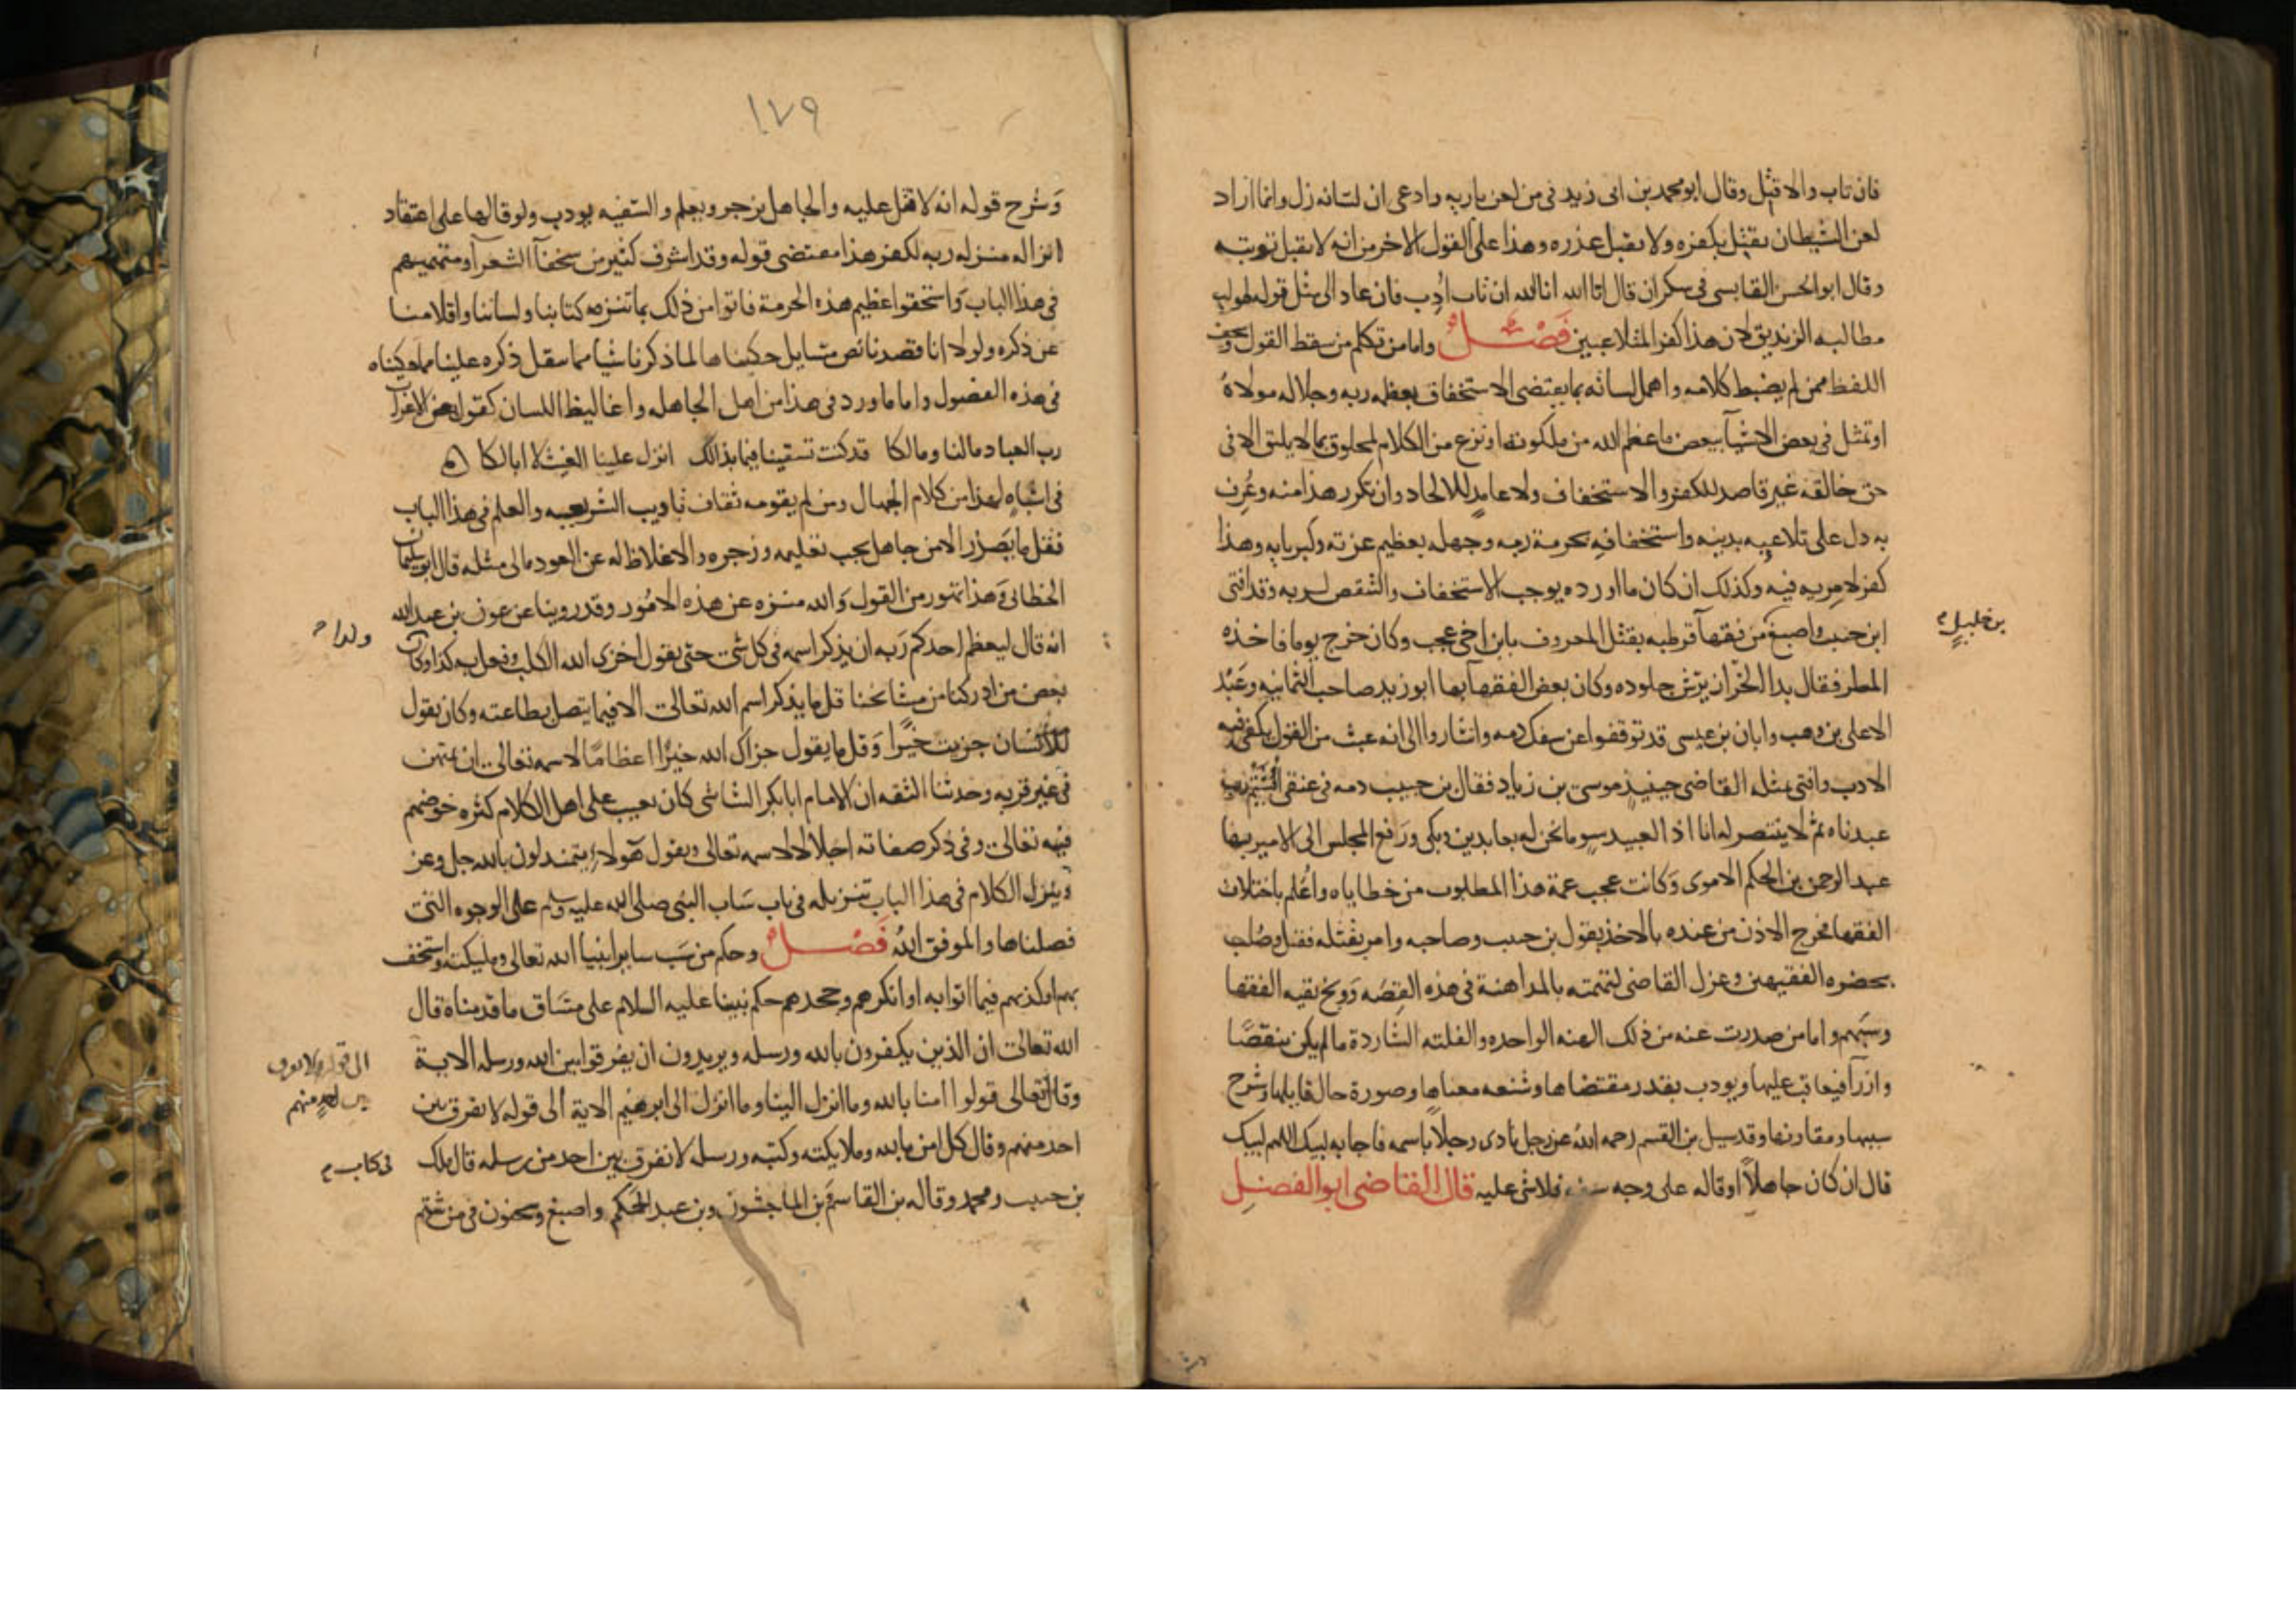 فان تاب والا قتل وقال ابو محمد بن ابى زيد فى من لعن باريه وادعى ان لسانه زل وانما اراد
لعن الشيطان يقتل بكفره ولا يقبل عذره وهذا على القول الاخر من انه لا يقبل توبته
وقال ابو الحسن القابسى فى سكران قال انا الله انا الله ان تاب ادب فان عاد الى مثل قوله طولب
مطالبه الزنديق لان هذا كفر المتلاعبين فصل واما من تكلم من سقط القول وسخف
اللفظ ممن لم يضبط كلامه واهمل لسانه بما يقتضى الاستخفاف بعظمه ربه وجلاله مولاه
او تمثل فى بعض الاشيآ ببعض ما عظم الله من ملكوته او نزع من الكلام لمخلوق بما لا يليق الا فى
حق خالقه غير قاصد للكفر والاستخفاف ولا عامد للالحاد وان تكرر هذا منه وعرف
به دل على تلاعبه بدينه واستخفافه بحرمة ربه وجهله بعظيم عزته وكبريايه وهذا
كفر لا مريه فيه وكذلك ان كان ما اورده يوجب الاستخفاف والتنقص لربه وقد افتى
ابن حبيب واصبغ من فقهآ قرطبه بقتل المعروف بابن اخى عجب وكان خرج يوما فاخذه
بن خليل
المطر فقال بدا الخراز يرش جلوده وكان بعض الفقهآ بها ابو زيد صاحب الثمانيه وعبد
الاعلى بن وهب وابان بن عيسى قد توقفوا عن سفك دمه واشاروا الى انه عبث من القول يكفى فيه
الادب وافتى بمثله القاضى حينيذ موسى بن زياد فقال بن حبيب دمه فى عنقى ايشتم رب
عبدناه ثم لا ينتصر له انا اذا لعبيد سو ما نحن له بعابدين وبكى ورفع المجلس الى الامير بها
عبد الرحمن بن الحكم الاموى وكانت عجب عمة هذا المطلوب من خطاياه واعلم باختلاف
الفقها فخرج الاذن من عنده بالاخذ بقول بن حبيب وصاحبه وامر بقتله فقتل وصلب
بحضره الفقيهين وعزل القاضى لتهمته بالمداهنة فى هذه القصه ووبخ بقيه الفقها
وسبهم واما من صدرت عنه من ذلك الهنه الواحده والفلته الشاردة ما لم يكن تنقصا
وازرآ فيعاقب عليها ويودب بقدر مقتضاها وشنعه معناها وصورة حال قايلها وشرح
سببها ومقارنها وقد سيل بن القسم رحمه الله عن رجل نادى رجلا باسمه فاجابه لبيك اللهم لبيك
قال ان كان جاهلا او قاله على وجه سفه فلا شى عليه قال القاضى ابو الفضل
١٧٩
وشرح قوله انه لا قتل عليه والجاهل يزجر ويعلم والسفيه يودب ولو قالها على اعتقاد
انزاله منزله ربه لكفر هذا مقتضى قوله وقد اسرف كثير من سخفآ الشعرآ ومتهميهم
فى هذا الباب واستخفوا عظيم هذه الحرمة فاتوا من ذلك بما ننزه كتابنا ولساننا واقلامنا
عن ذكره ولولا انا قصدنا نص مسايل حكيناها لما ذكرنا شيا مما يثقل ذكره علينا مما حكيناه
فى هذه الفصول واما ما ورد فى هذا من اهل الجاهله واغاليظ اللسان كقول بعض الاعراب
رب العباد ما لنا وما لكا قد كنت تسقينا فما بدالك انزل علينا الغيث لا ابا لكا
فى اشباه لهذا من كلام الجهال ومن لم يقومه ثقاف تاديب الشريعه والعلم فى هذا الباب
فقل ما يصدر الا من جاهل يجب تعليمه وزجره والاغلاظ له عن العود الى مثله قال ابو سليمان
الخطابى وهذا تهور من القول والله منزه عن هذه الامور وقد روينا عن عون بن عبد الله
انه قال ليعظم احدكم ربه ان يذكر اسمه فى كل شى حتى يقول اخزى الله الكلب وفعل به كذا وكان
بعض من ادركنا من مشايخنا قل ما يذكر اسم الله تعالى الا فيما يتصل بطاعته وكان يقول
للانسان جزيت خيرا وقل ما يقول جزاك الله خيرا اعظاما لاسمه تعالى ان يمتهن
فى غير قربه وحدثنا الثقه ان الامام ابا بكر الشاشى كان يعيب على اهل الكلام كثره خوضهم
فيه تعالى وفى ذكر صفاته اجلالا لاسمه تعالى ويقول هولاء يتمندلون بالله جل وعز
وينزل الكلام فى هذا الباب تنزيله فى باب ساب النبى صلى الله عليه وسلم على الوجوه التى
فصلناها والموفق الله فصل وحكم من سب ساير انبيا الله تعالى ومليكته واستخف
بهم او كذبهم فيما اتوا به او انكرهم وجحدهم حكم نبينا عليه السلام على مساق ما قدمناه قال
الله تعالى ان الذين يكفرون بالله ورسله ويريدون ان يفرقوا بين الله ورسله الاية
وقال تعالى قولوا امنا بالله وما انزل الينا وما انزل الى ابرهيم الاية الى قوله لا نفرق بين
الى قوله لا نفرق
بين احد منهم
احد منهم وقال كل امن بالله وملايكته وكتبه ورسله لا نفرق بين احد من رسله قال ملك
فى كتاب
بن حبيب ومحمد وقاله بن القاسم بن الماجشون وبن عبد الحكم واصبغ وسحنون فى من شتم